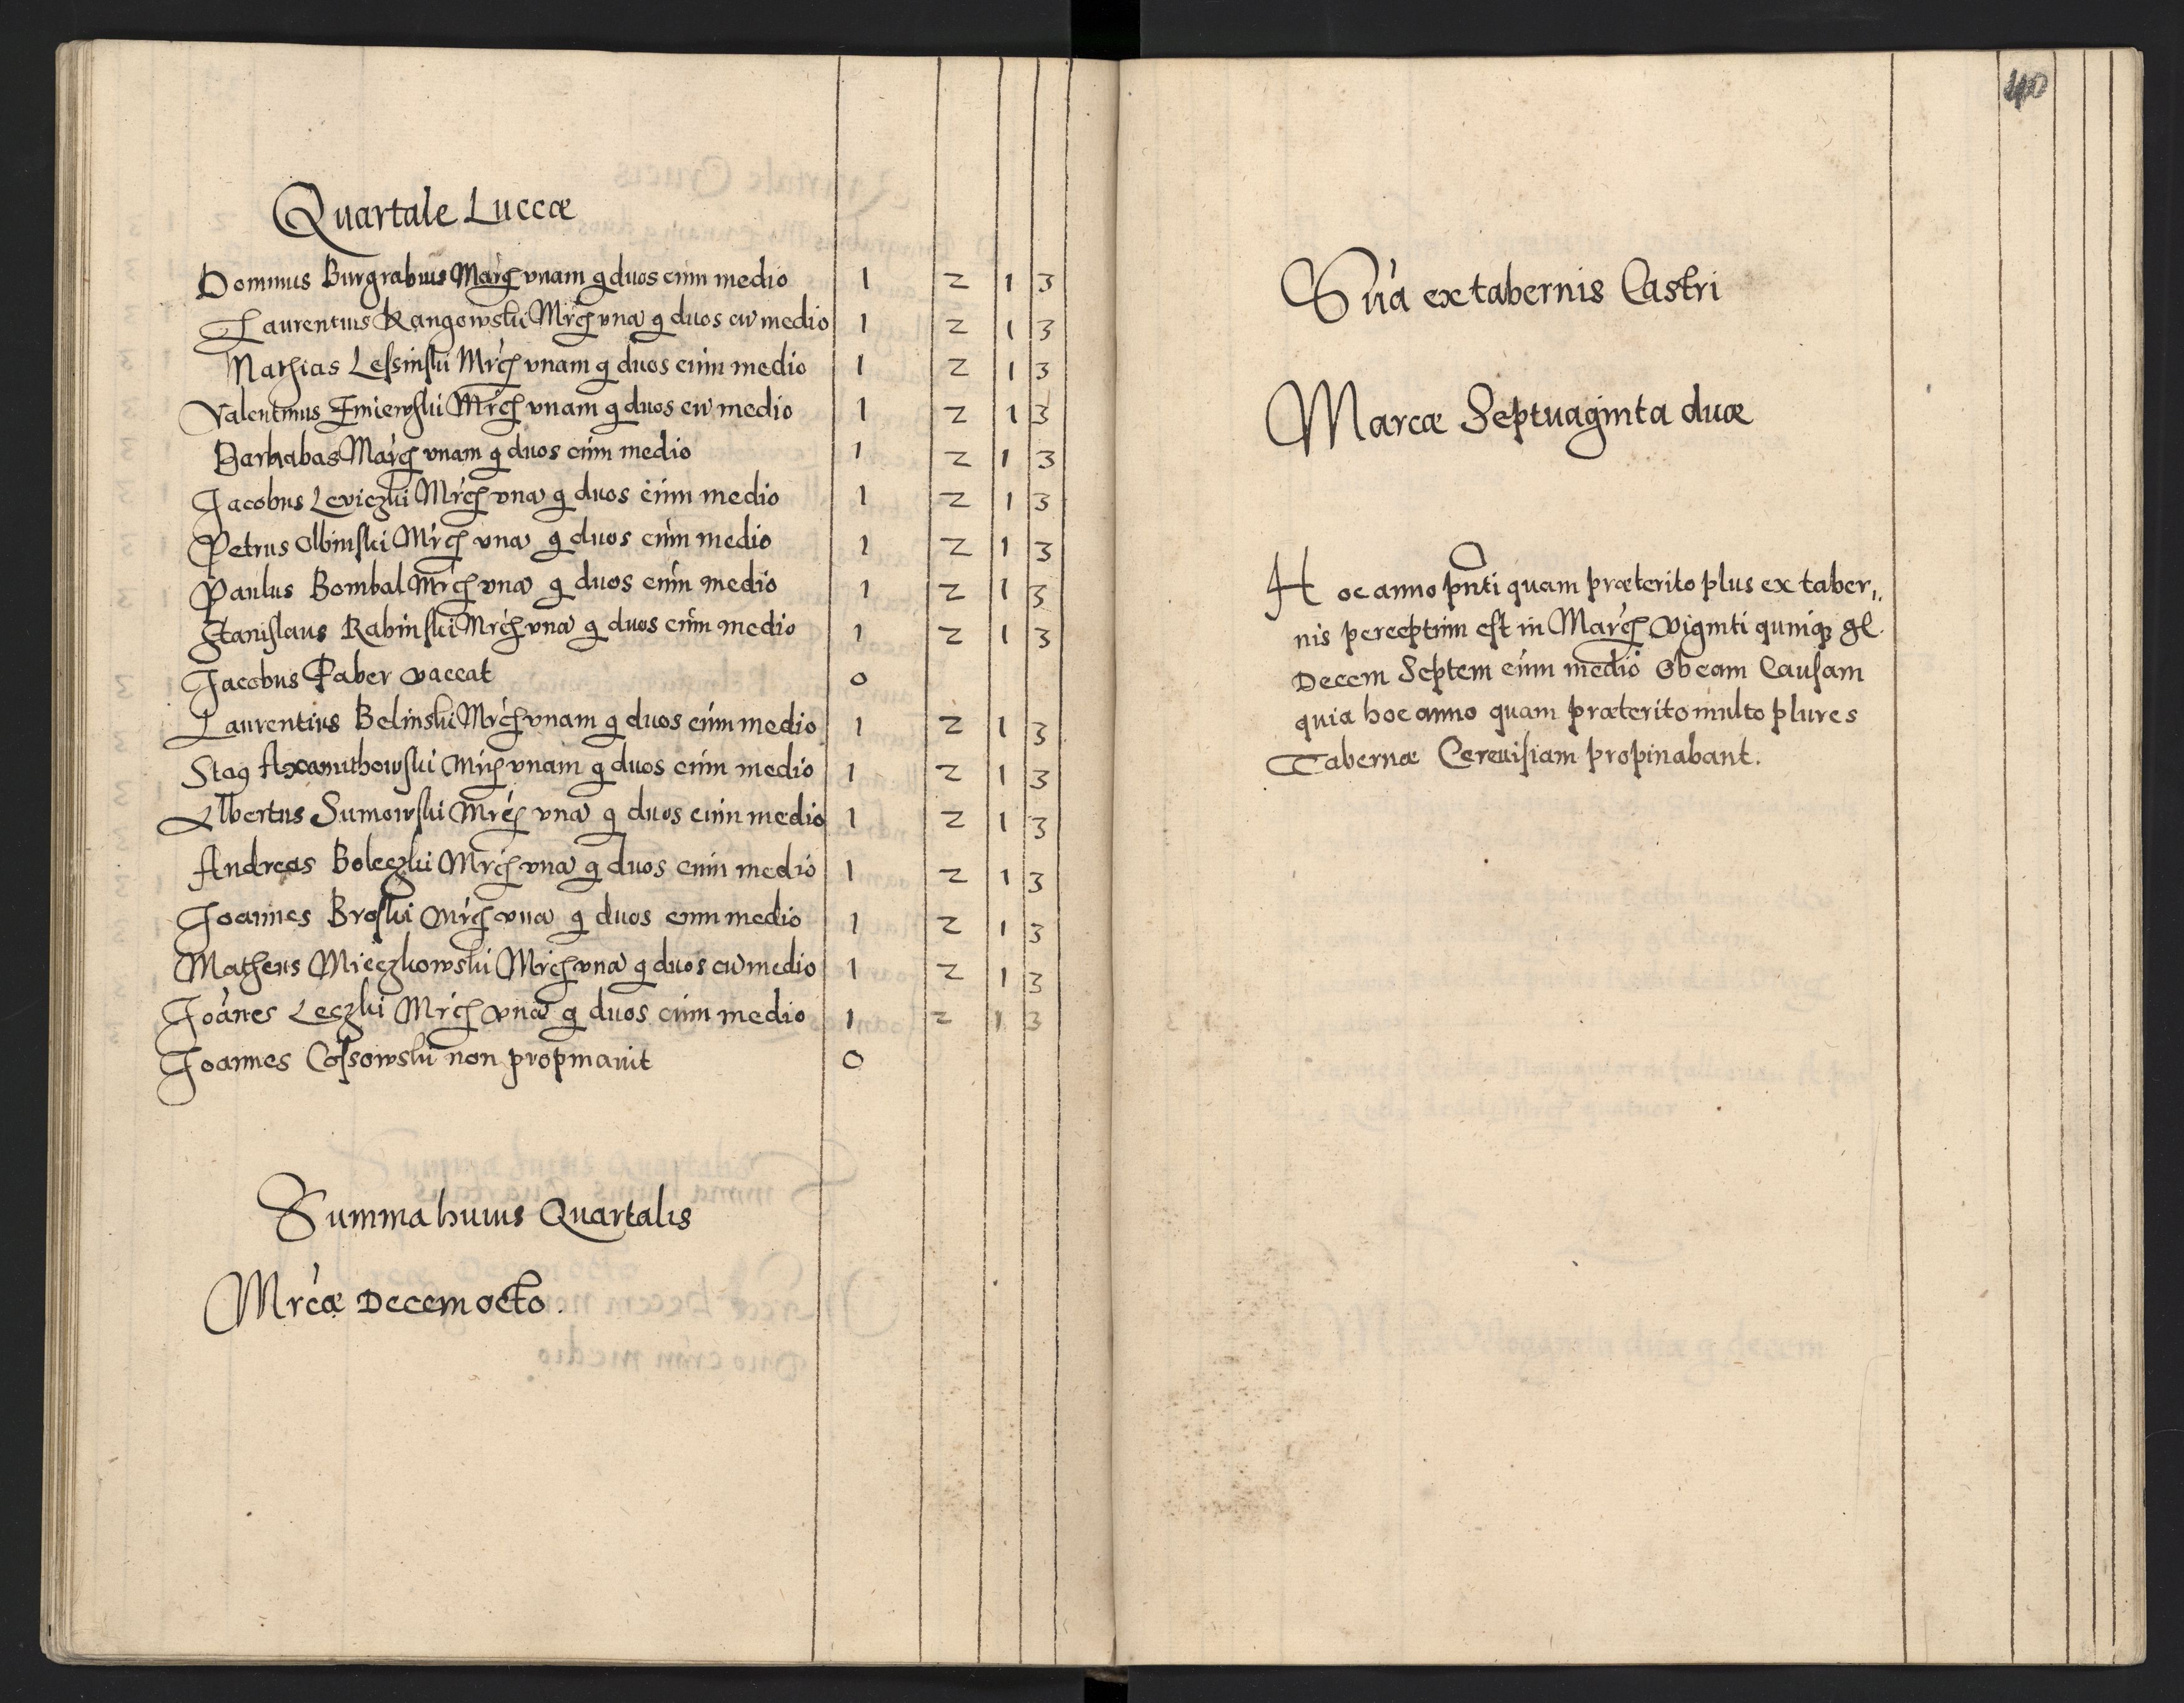 Quartale Luccæ
Dominus Burgrabius Marcã vnam g duos cum medio 1 2 1 3
Laurentius Rangowski Mrcã vnã g duos cũ medio 1 2 1 3
Mathias Lessinski Mrcã vnam g duos cum medio 1 2 1 3
Valentinus Zmiewski Mrcã vnam g duos cũ medio 1 2 1 3
Barnabas Marcã vnam g duos cum medio 1 2 1 3
Jacobus Leviczki Mrcã vnã g duos cum medio 1 2 1 3
Petrus Olbinski Mrcã vnã g duos cum medio 1 2 1 3
Paulus Bombal Mrcã vnã g duos cum medio 1 2 1 3
Stanislaus Rabinski Mrcã vnã g duos cum medio 1 2 1 3
Jacobus Faber vaccat 0
Laurentius Belinski Mrcã vnam g duos cum medio 1 2 1 3
Stag Axamithowski Mrcã vnam g duos cum medio 1 2 1 3
Albertus Sumowski Mrcã vnã g duos cum medio 1 2 1 3
Andreas Boleczki Mrcã vnã g duos cum medio 1 2 1 3
Joannes Broski Mrcã vnã g duos cum medio 1 2 1 3
Matheus Mieczkowski Mrcã vnã g duos cũ medio 1 2 1 3
Joãnes Leczki Mrcã vnã g duos cum medio 1 2 1 3
Joannes Cossowski non propinauit 0
Summa huius Quartalis
Mrcæ Decem octo.
40
Sũa ex tabernis Castri
Marcæ Septuaginta duæ
Hoc anno pñti quam præterito plus ex taber„
nis perceptum est in Marcã viginti quinqꝫ gl.
Decem Septem cum medio Ob eam Causam
quia hoc anno quam præterito multo plures
Tabernæ Cereuisiam propinabant.